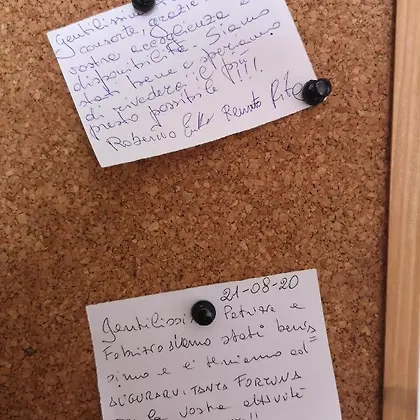 Gentilissim
consorte, grazie
vostra accoglienza e
disponibilità. Siamo
stati bene e speriamo
di rivederci il più
presto possibile!!!
Roberto Erika Renato Rita
21-08-20
Gentilissi e
Fabrizio siamo stati benis
simo e ci teniamo ad
AUGURARVI TANTA FORTUNA
la vostra attività